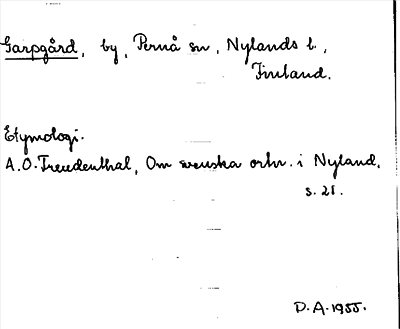 Garpgård, by, Pernå sn, Nylands l.,
Finland.
Etymologi.
A.O. Freudenthal, Om svenska ortn. i Nyland,
s. 21.
D.A. 1955.